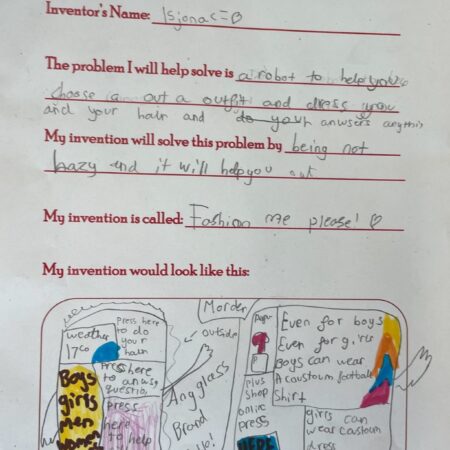 Inventor's Name:
The problem I will help solve is a robot to help you
choose a out a outfit and dress you
and your hair and do your answers anything
My invention will solve this problem by being not
lazy and it will help you out
My invention is called: Fashion me please!
My invention would look like this:
weather
17co
press here
to do
your
hair
press here
to answ
question
Boys
girls
men
press
here
to help
outside
Morder
Anggress
Brand
Even for boys
Even for girls
Boys can wear
A caustoum football
Shirt
plus
shop
online
press
HERE
girls can
wear caustoum
dress